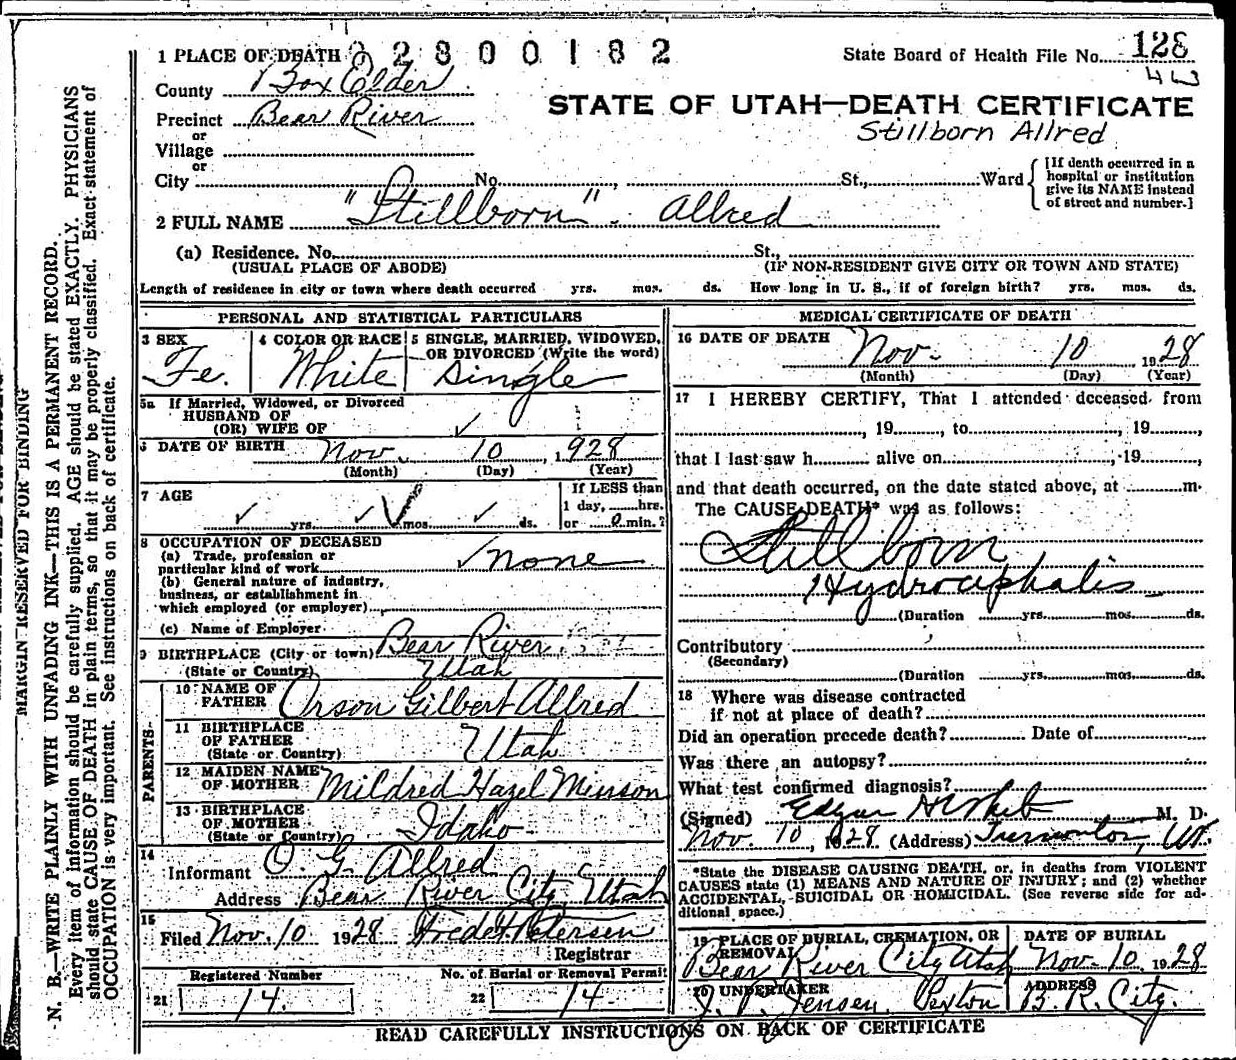 1 PLACE OF DEATH 02800182
State Board of Health File No. 128
County Box Elder
Precinct Bear River
STATE OF UTAH—DEATH CERTIFICATE
or
Stillborn Allred
Village
or
City No. , St., Ward
[If death occurred in a
hospital or institution
give its NAME instead
of street and number.]
2 FULL NAME "Stillborn". Allred
(a) Residence. No. St.,
(USUAL PLACE OF ABODE) (IF NON-RESIDENT GIVE CITY OR TOWN AND STATE)
Length of residence in city or town where death occurred yrs. mos. ds. How long in U. S., if of foreign birth? yrs. mos. ds.
PERSONAL AND STATISTICAL PARTICULARS
3 SEX 4 COLOR OR RACE 5 SINGLE, MARRIED, WIDOWED,
OR DIVORCED (Write the word)
Fe. White Single
5a If Married, Widowed, or Divorced
HUSBAND OF
(OR) WIFE OF ✓
6 DATE OF BIRTH Nov. 10, 1928
(Month) (Day) (Year)
7 AGE If LESS than
1 day, hrs.
✓ yrs. ✓ mos. ✓ ds. or 0 min.?
8 OCCUPATION OF DECEASED
(a) Trade, profession or
particular kind of work ✓ none
(b) General nature of industry,
business, or establishment in
which employed (or employer)
(c) Name of Employer
9 BIRTHPLACE (City or town) Bear River
(State or Country) Utah
PARENTS
10 NAME OF
FATHER Orson Gilbert Allred
11 BIRTHPLACE
OF FATHER
(State or Country) Utah
12 MAIDEN NAME
OF MOTHER Mildred Hazel Minson
13 BIRTHPLACE
OF MOTHER
(State or Country) Idaho
14
Informant O. G. Allred
Address Bear River City, Utah
15
Filed Nov. 10 1928 Fred H Petersen
Registrar
Registered Number No. of Burial or Removal Permit
21 14. 22 14
MEDICAL CERTIFICATE OF DEATH
16 DATE OF DEATH Nov. 10 1928
(Month) (Day) (Year)
17 I HEREBY CERTIFY, That I attended deceased from
, 19 , to , 19 ,
that I last saw h alive on , 19 ,
and that death occurred, on the date stated above, at m.
The CAUSE DEATH* was as follows:
Stillborn
Hydrocephalis
(Duration yrs. mos. ds.
Contributory
(Secondary)
(Duration yrs. mos. ds.
18 Where was disease contracted
if not at place of death?
Did an operation precede death? Date of
Was there an autopsy?
What test confirmed diagnosis?
(Signed) Edgar M. D.
Nov. 10, 1928. (Address) Tremonton, Ut.
*State the DISEASE CAUSING DEATH, or, in deaths from VIOLENT
CAUSES state (1) MEANS AND NATURE OF INJURY; and (2) whether
ACCIDENTAL, SUICIDAL OR HOMICIDAL. (See reverse side for ad-
ditional space.)
19 PLACE OF BURIAL, CREMATION, OR DATE OF BURIAL
REMOVAL
Bear River City Utah Nov. 10. 1928
20 UNDERTAKER ADDRESS
J. P. Jensen Sexton B. R. City.
READ CAREFULLY INSTRUCTIONS ON BACK OF CERTIFICATE
MARGIN RESERVED FOR BINDING
N. B.—WRITE PLAINLY WITH UNFADING INK—THIS IS A PERMANENT RECORD.
Every item of information should be carefully supplied. AGE should be stated EXACTLY. PHYSICIANS
should state CAUSE OF DEATH in plain terms, so that it may be properly classified. Exact statement of
OCCUPATION is very important. See instructions on back of certificate.